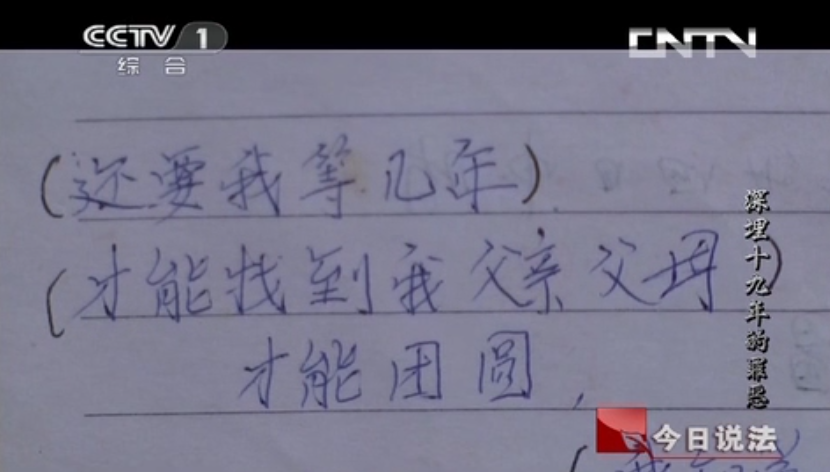 CCTV 1
综合
CNTV
(还要我等几年)
(才能找到我父亲父母)
才能团圆,
深埋十九年的罪恶
今日说法